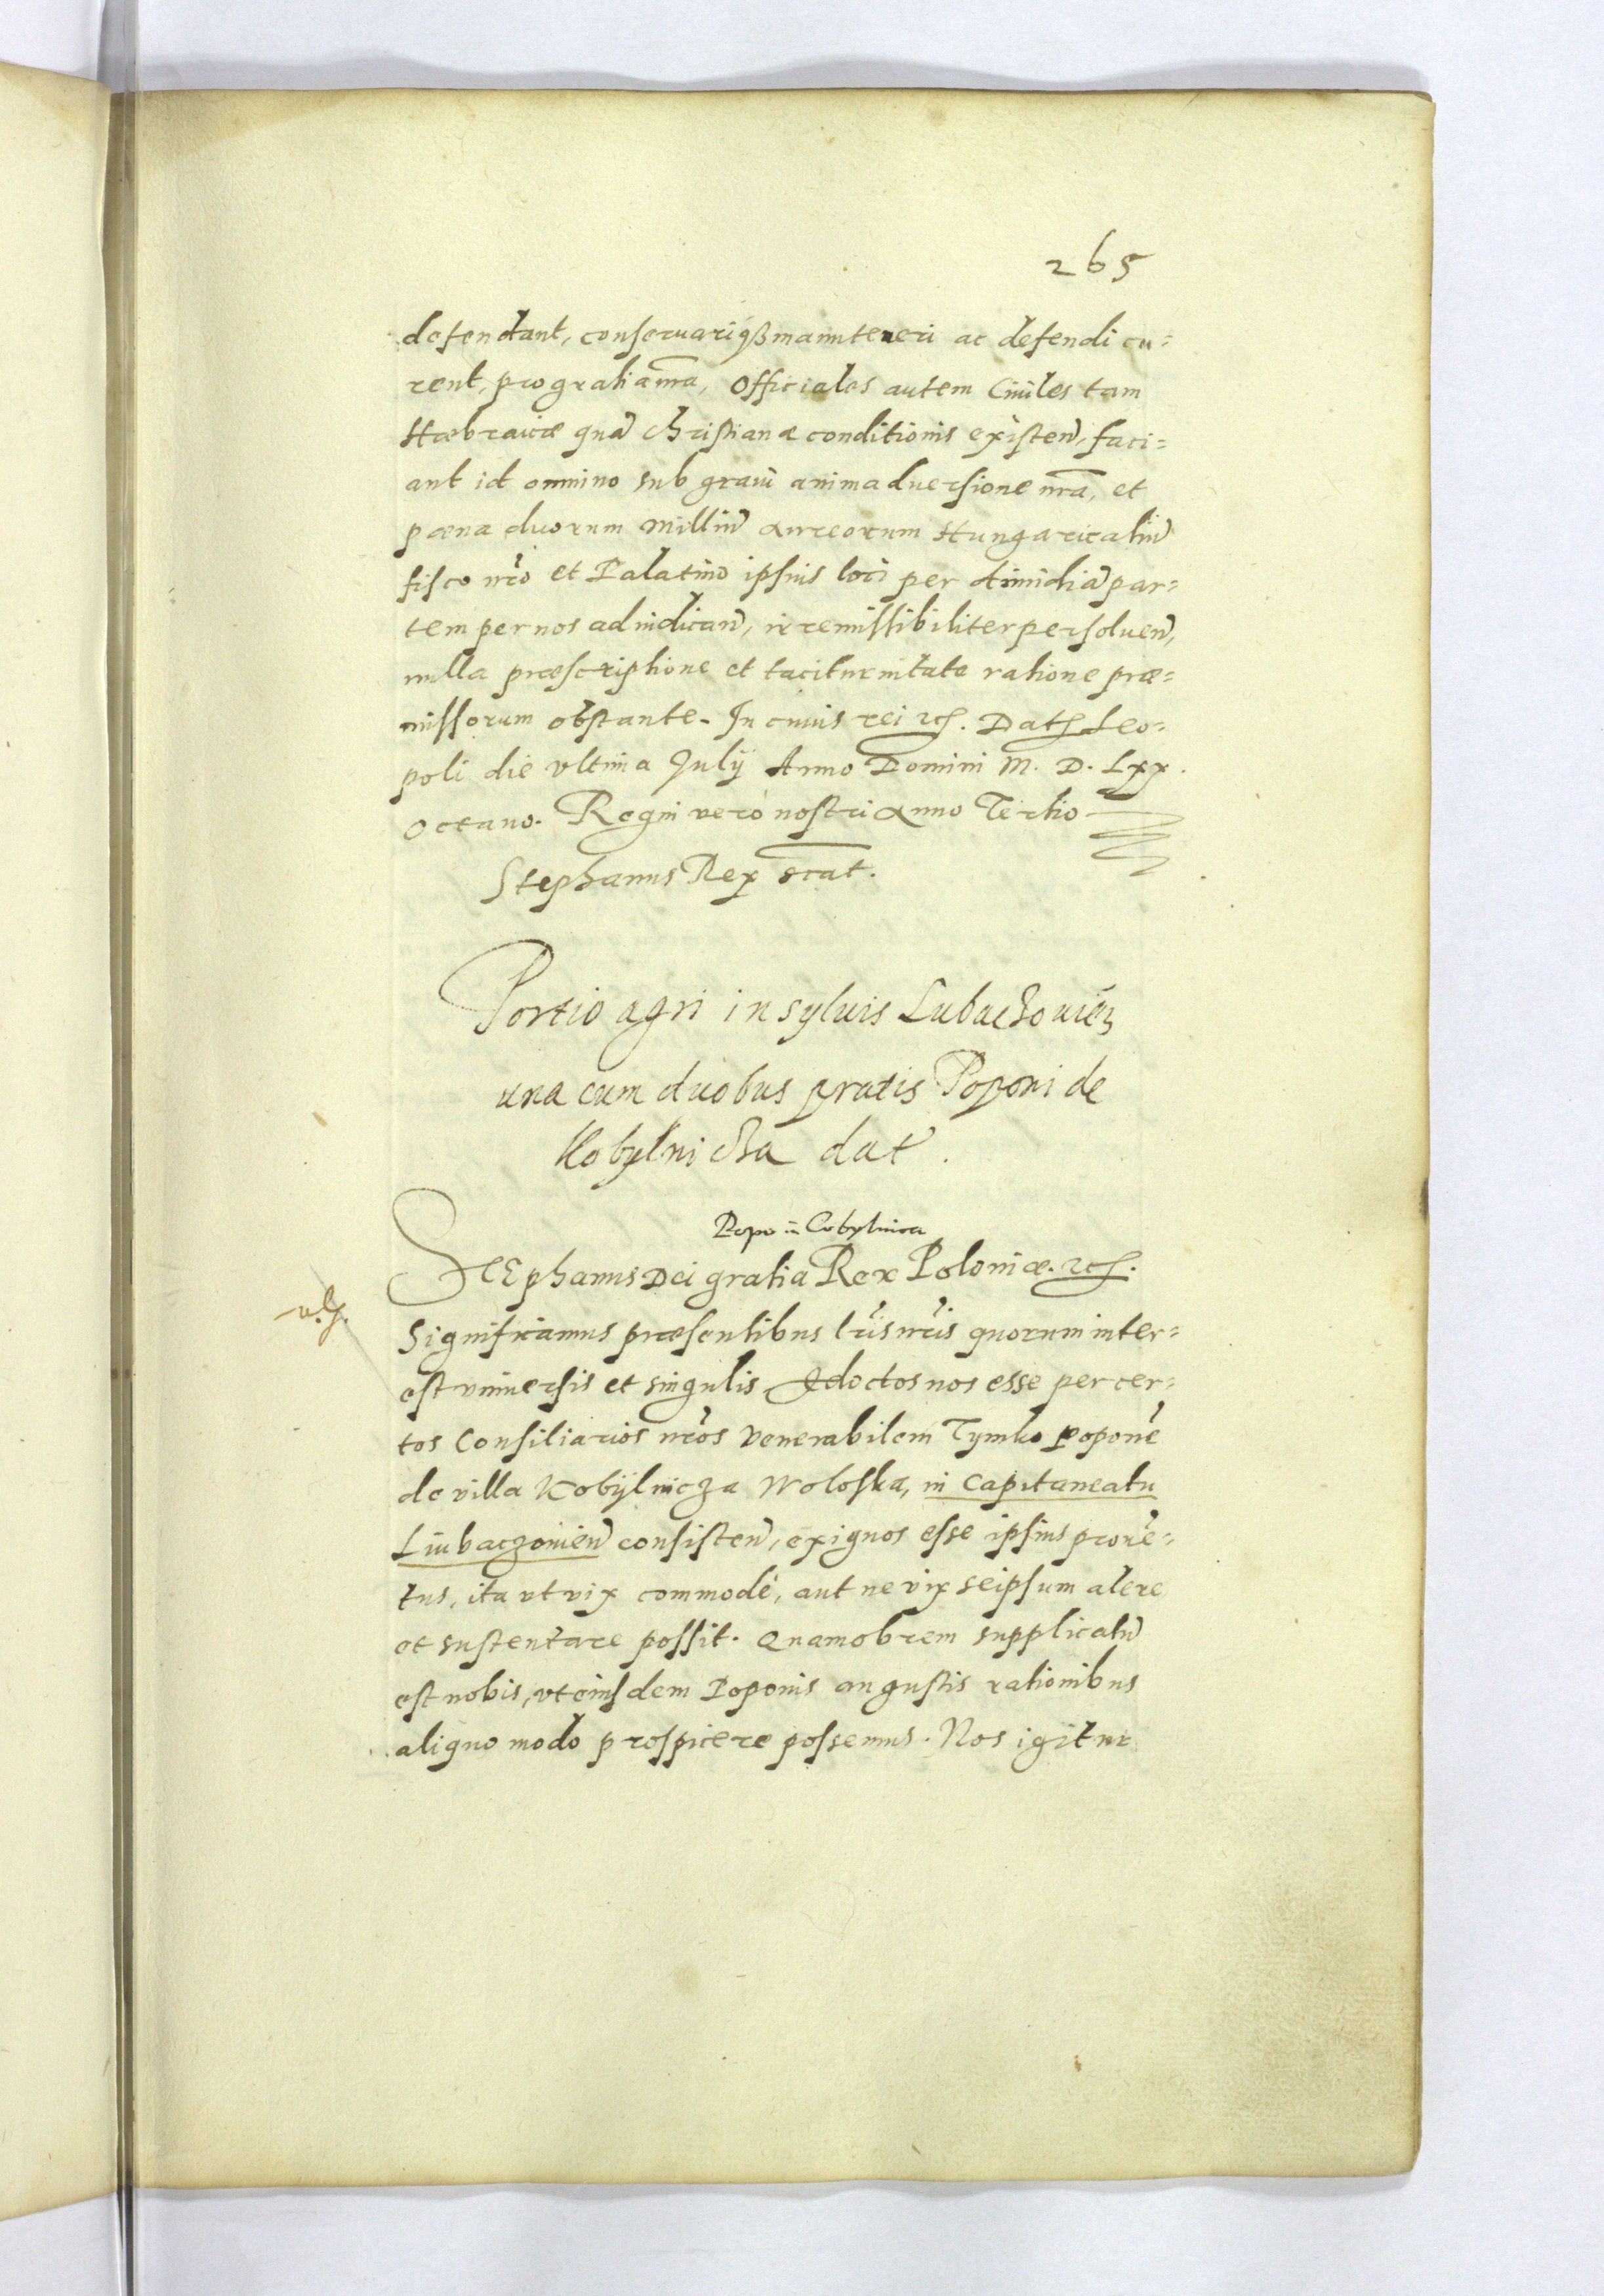 265
defendant, conseruariqß manuteneri ac defendi cu=
rent, pro gratia nr̃a, Officiales autem Ciuiles tam
Hæbraicæ quã Christianæ conditionis existeñ, faci=
ant id omnino sub graui animaduersione nr̃a, et
pæna duorum Milliũ aureorum Hungaricaliũ
fisco nr̃o et Palatino ipsius loci per dimidiã par=
tem per nos adiudicañ, irremissibiliter persolueñ,
nulla præscriptione et taciturnitate ratione præ=
missorum obstante. In cuius rei etc. Datt Leo=
poli die vltima Julij Anno Domini M. D. Lxx.
Octauo. Regni verò nostri Anno Tertio
Stephanus Rex sc̃at.
Portio agri in syluis Lubachouień
una cum duobus pratis Poponi de
Kobylnicha dat̃.
Popo in Cobylnica
STEphanus Dei gratia Rex Poloniæ. etc.
Significamus præsentibus lr̃is nr̃is quorum inter=
est vniuersis et singulis Edoctos nos esse per cer=
tos Consiliarios nr̃os Venerabilem Tymko poponẽ
de villa Kobÿlnicza Woloska, in Capitaneatu
Liubaczouieñ consisteñ, exiguos esse ipsius prouẽ=
tus, ita vt vix commodè, aut ne vix seipsum alere
et sustentare possit. Quamobrem supplicatũ
est nobis, vt eiusdem Poponis angustis rationibus
aliquo modo prospicere possemus. Nos igitur